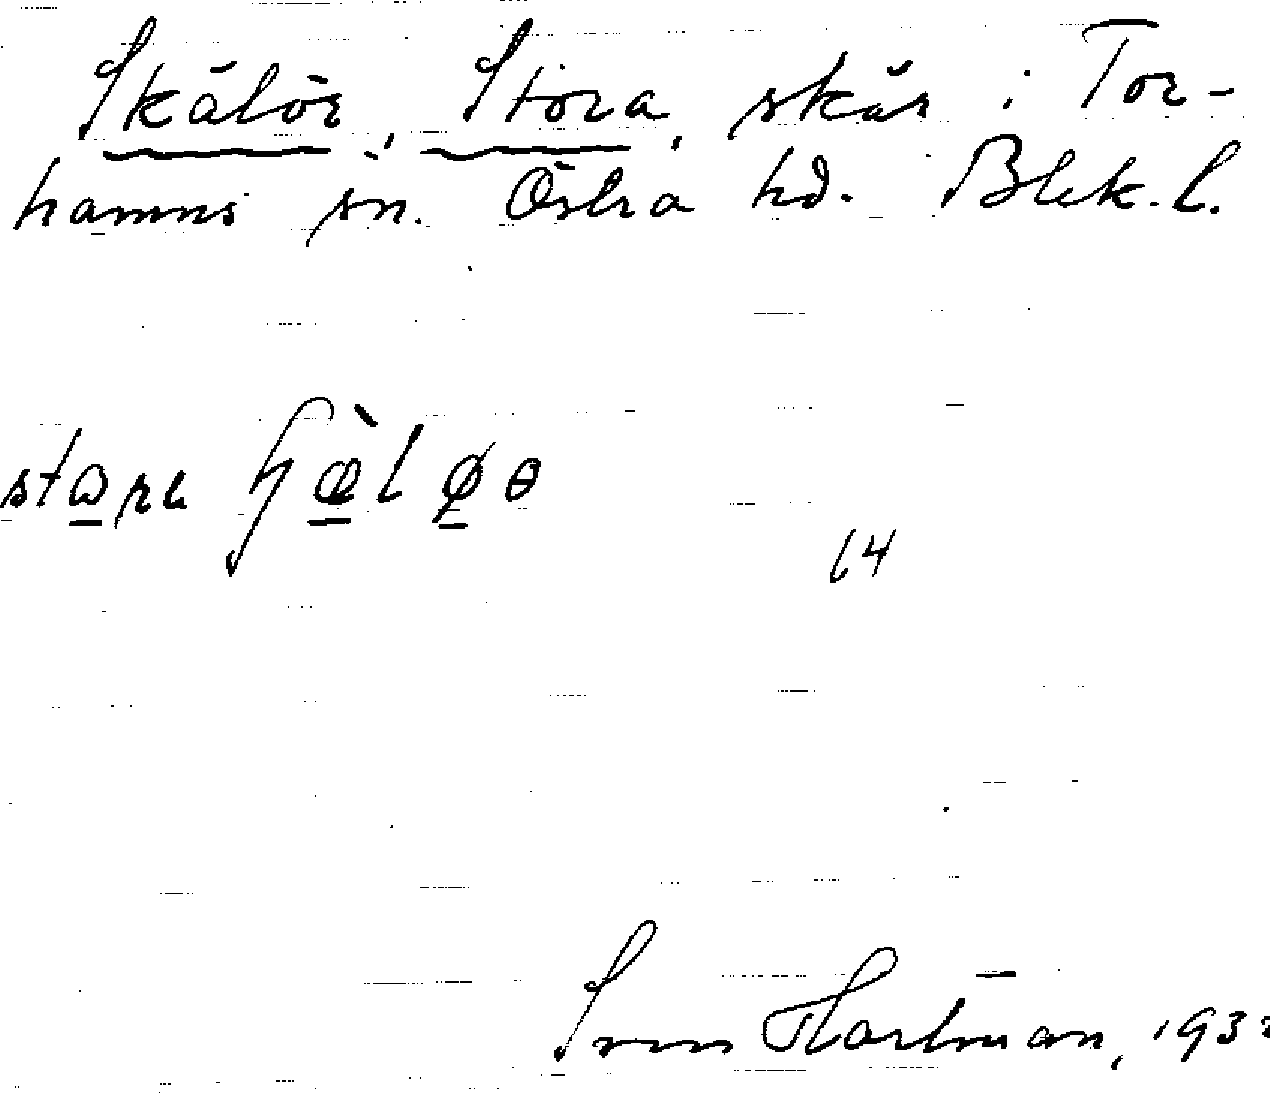 Skälör, Stora, skär i Tor-
hamns sn. Östra hd. Blek. l.
64
Sven Hartman, 193